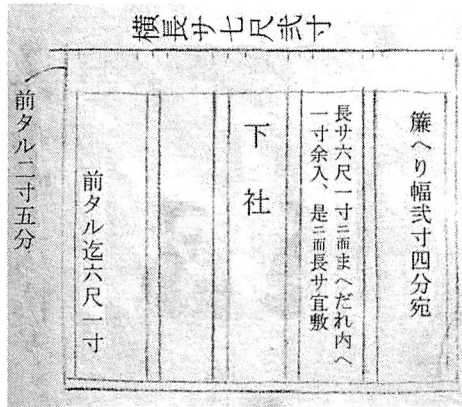 横長サ七尺弐寸
簾へり幅弐寸四分宛
長サ六尺一寸ニ而まへだれ内へ
一寸余入、是ニ而長サ宜敷
下社
前タル迄六尺一寸
前タル二寸五分